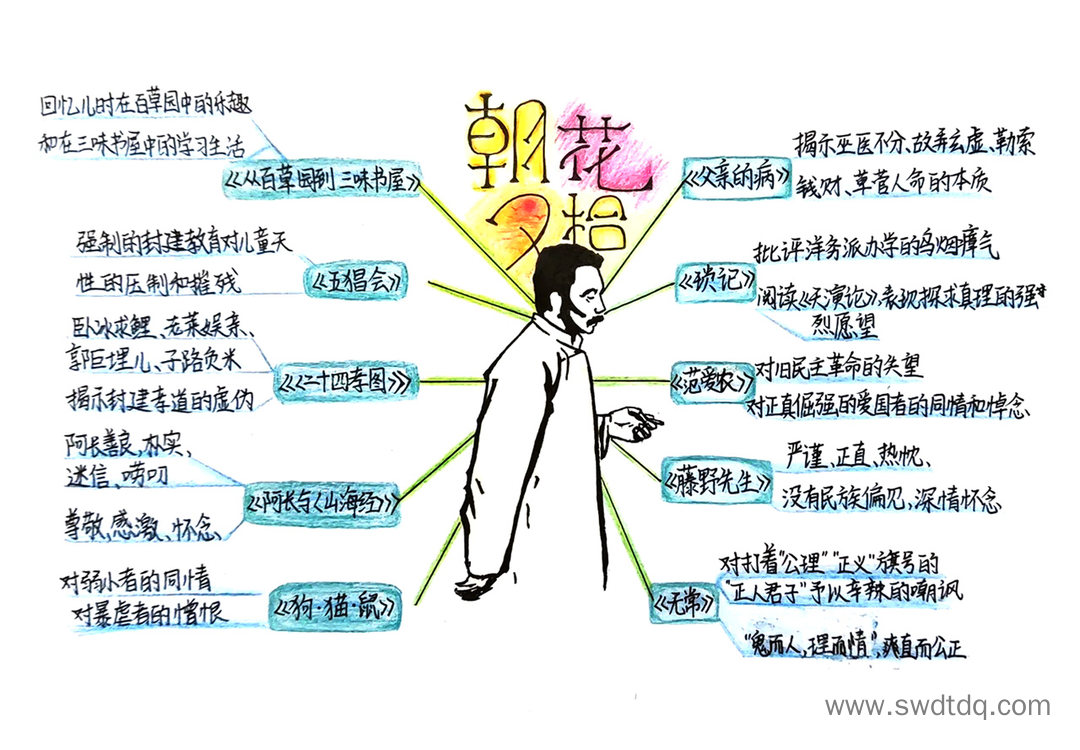 朝花
夕拾
回忆儿时在百草园中的乐趣
和在三味书屋中的学习生活
《从百草园到三味书屋》
强制的封建教育对儿童天
性的压制和摧残
《五猖会》
卧冰求鲤、老莱娱亲、
郭巨埋儿、子路负米
揭示封建孝道的虚伪
《《二十四孝图》》
阿长善良,朴实、
迷信、唠叨
尊敬,感激、怀念、
《阿长与《山海经》》
对弱小者的同情
对暴虐者的憎恨
《狗·猫·鼠》
《父亲的病》
揭示巫医不分、故弄玄虚、勒索
钱财、草菅人命的本质
《琐记》
批评洋务派办学的乌烟瘴气
阅读《天演论》,表现探求真理的强
烈愿望
《范爱农》
对旧民主革命的失望
对正真倔强的爱国者的同情和悼念
《藤野先生》
严谨、正直、热忱、
没有民族偏见,深情怀念
《无常》
对打着"公理""正义"旗号的
"正人君子"予以辛辣的嘲讽
"鬼而人,理而情",爽直而公正
www.swdtdq.com